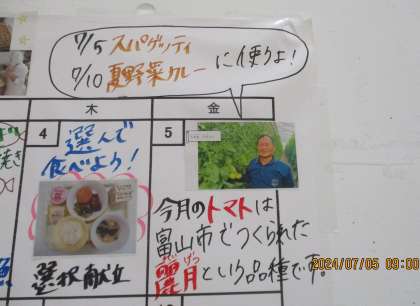 7/5 スパゲッティ
7/10 夏野菜カレー
に使うよ!
木
金
4
選んで
食べよう!
選択献立
5
今月のトマトは
富山市でつくられた
げつ
霽月という品種です。
焼き
2024/07/05 09:00